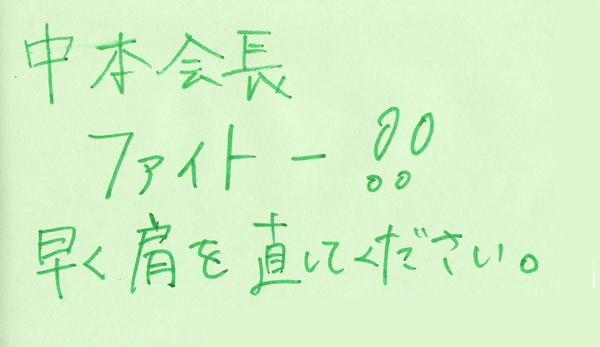 中本会長
ファイトー!!
早く肩を直してください。